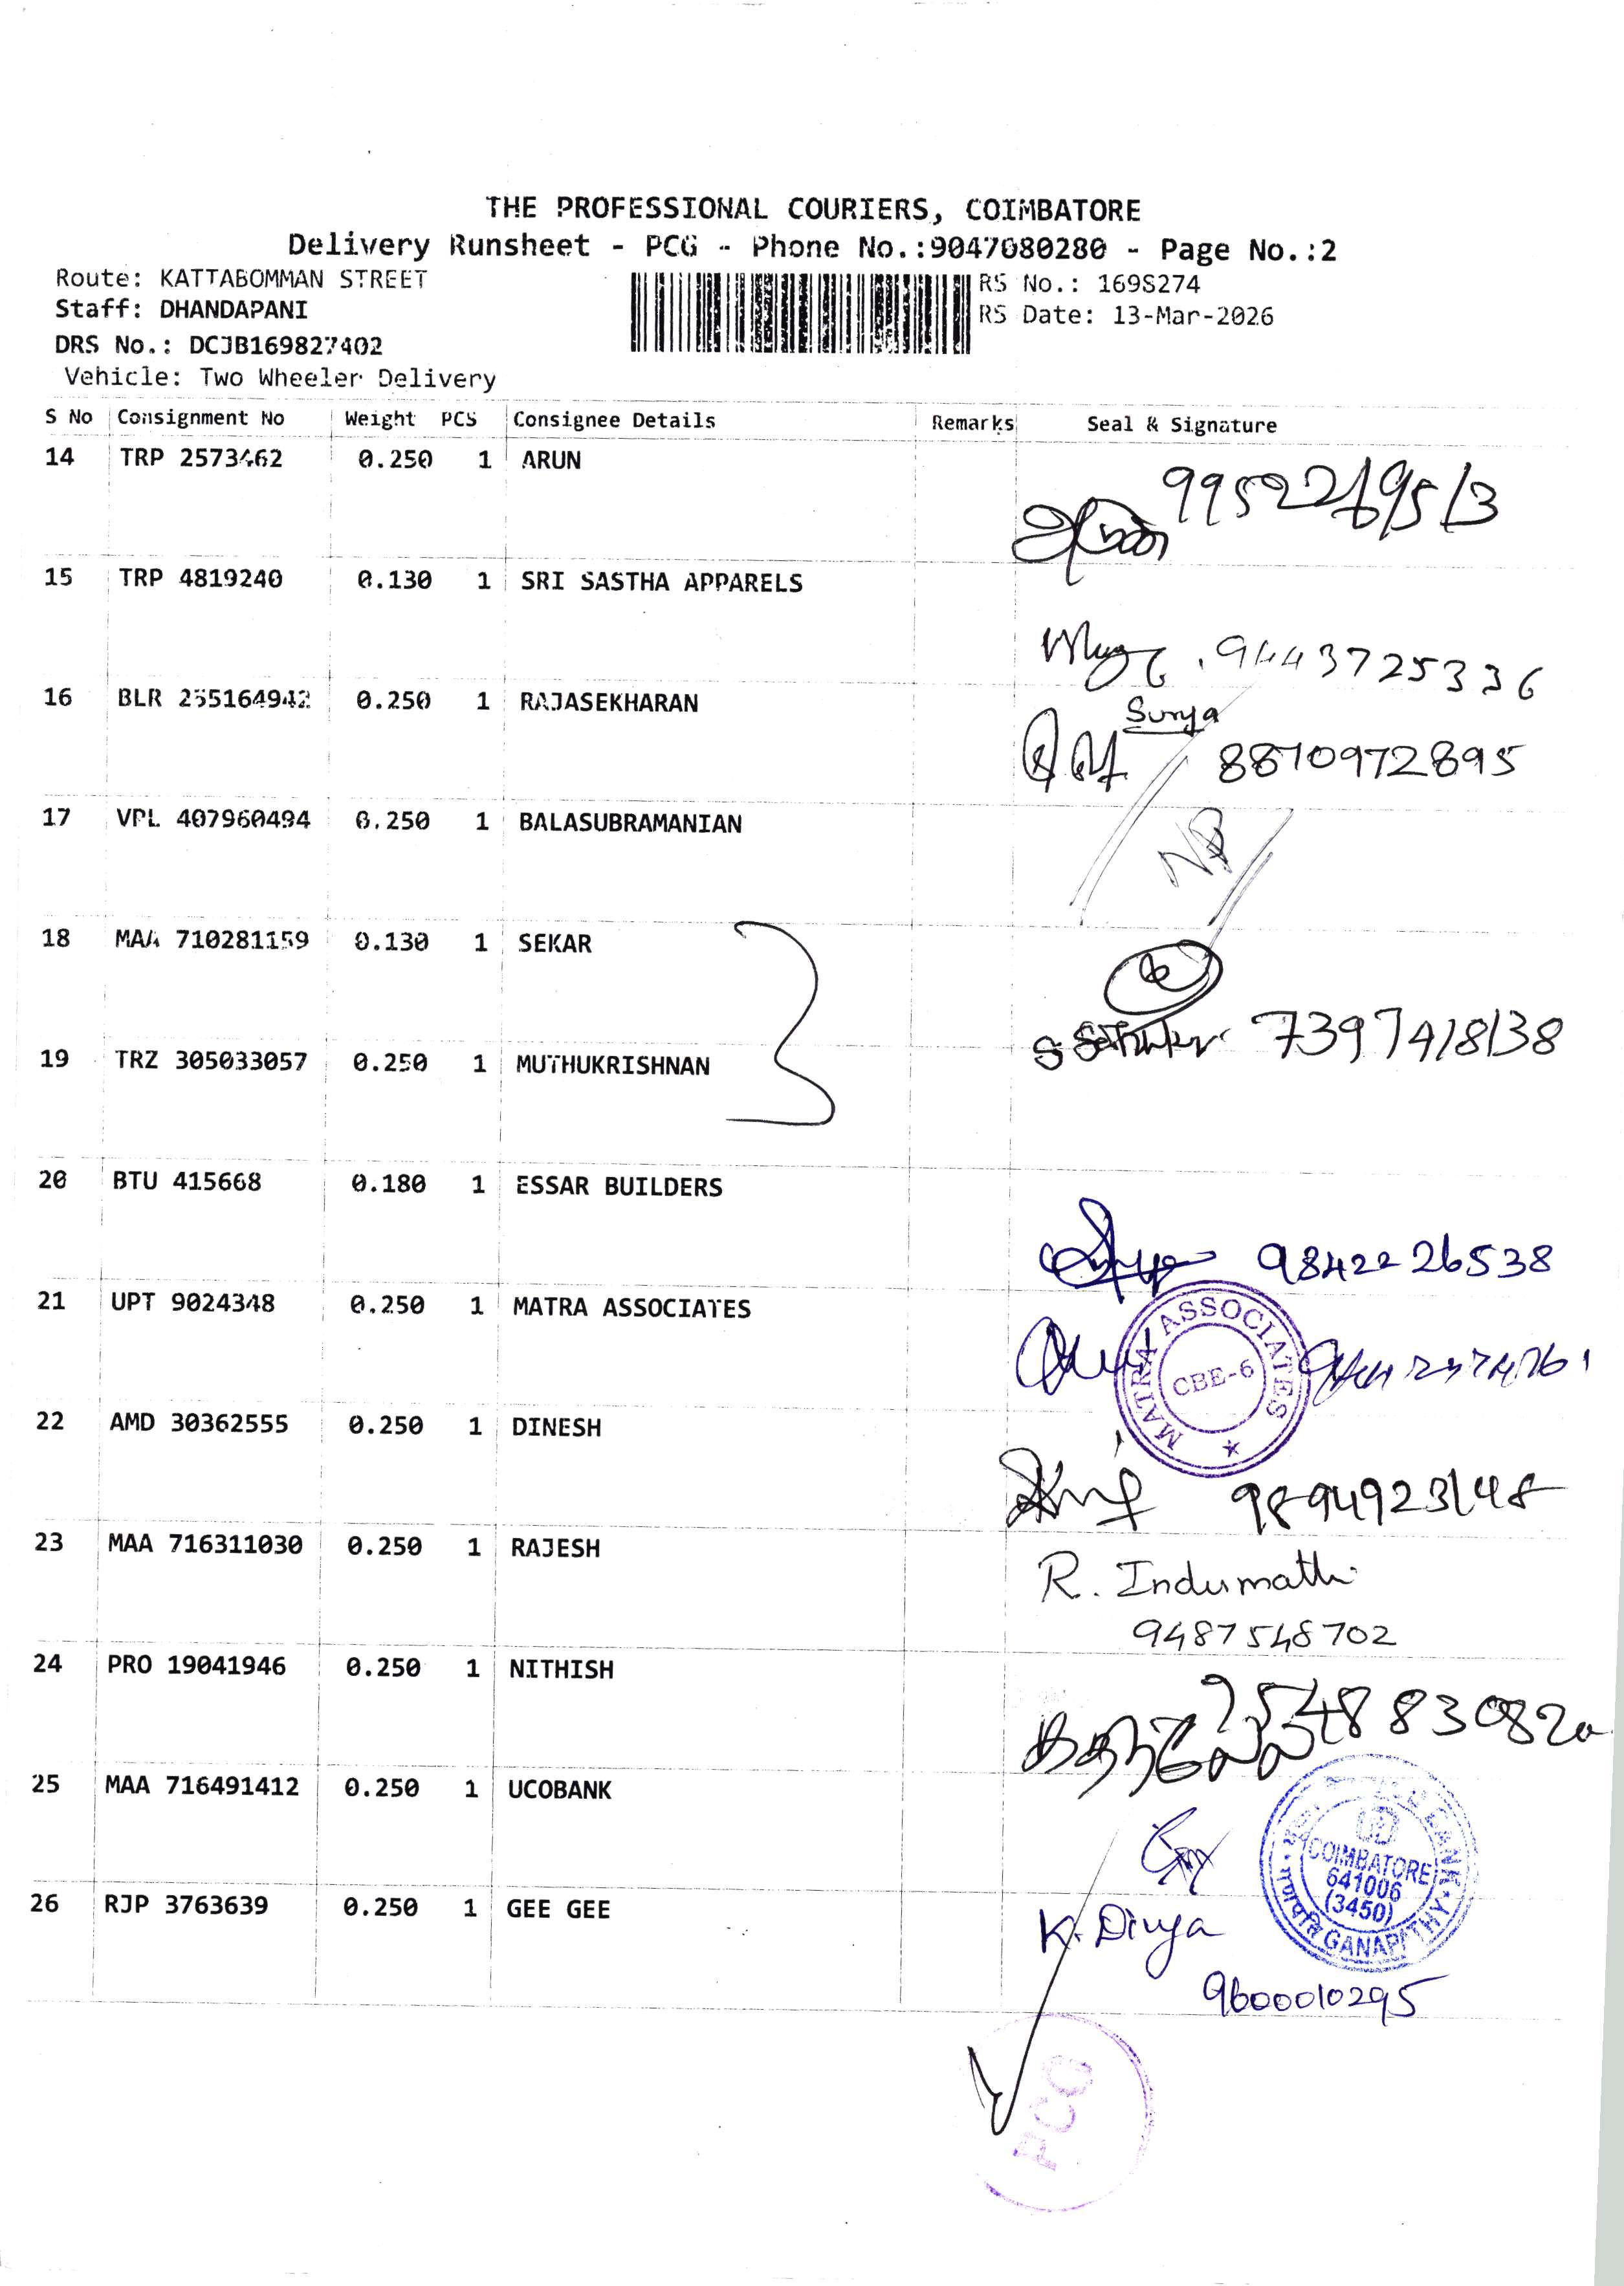 THE PROFESSIONAL COURIERS, COIMBATORE
Delivery Runsheet - PCG - Phone No.:9047080280 - Page No.:2
Route: KATTABOMMAN STREET
RS No.: 1698274
Staff: DHANDAPANI
RS Date: 13-Mar-2026
DRS No.: DCJB169827402
Vehicle: Two Wheeler Delivery
S No Consignment No Weight PCS Consignee Details Remarks Seal & Signature
14 TRP 2573462 0.250 1 ARUN
15 TRP 4819240 0.130 1 SRI SASTHA APPARELS
9443725336
16 BLR 255164942 0.250 1 RAJASEKHARAN
Surya
8870972895
17 VPL 407960494 0.250 1 BALASUBRAMANIAN
18 MAA 710281159 0.130 1 SEKAR
7397418138
19 TRZ 305033057 0.250 1 MUTHUKRISHNAN
20 BTU 415668 0.180 1 ESSAR BUILDERS
9842226538
21 UPT 9024348 0.250 1 MATRA ASSOCIATES
MATRA ASSOCIATES
CBE-6
22 AMD 30362555 0.250 1 DINESH
9894923148
23 MAA 716311030 0.250 1 RAJESH
R. Indumathi
9487548702
24 PRO 19041946 0.250 1 NITHISH
25 MAA 716491412 0.250 1 UCOBANK
COIMBATORE
641006
(3450)
GANAPATHY
26 RJP 3763639 0.250 1 GEE GEE
K. Divya
9600010295
PCG